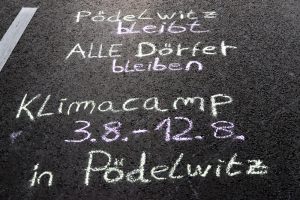 Pödelwitz
bleibt
ALLE Dörfer
bleiben
Klimacamp
3.8.-12.8.
in Pödelwitz